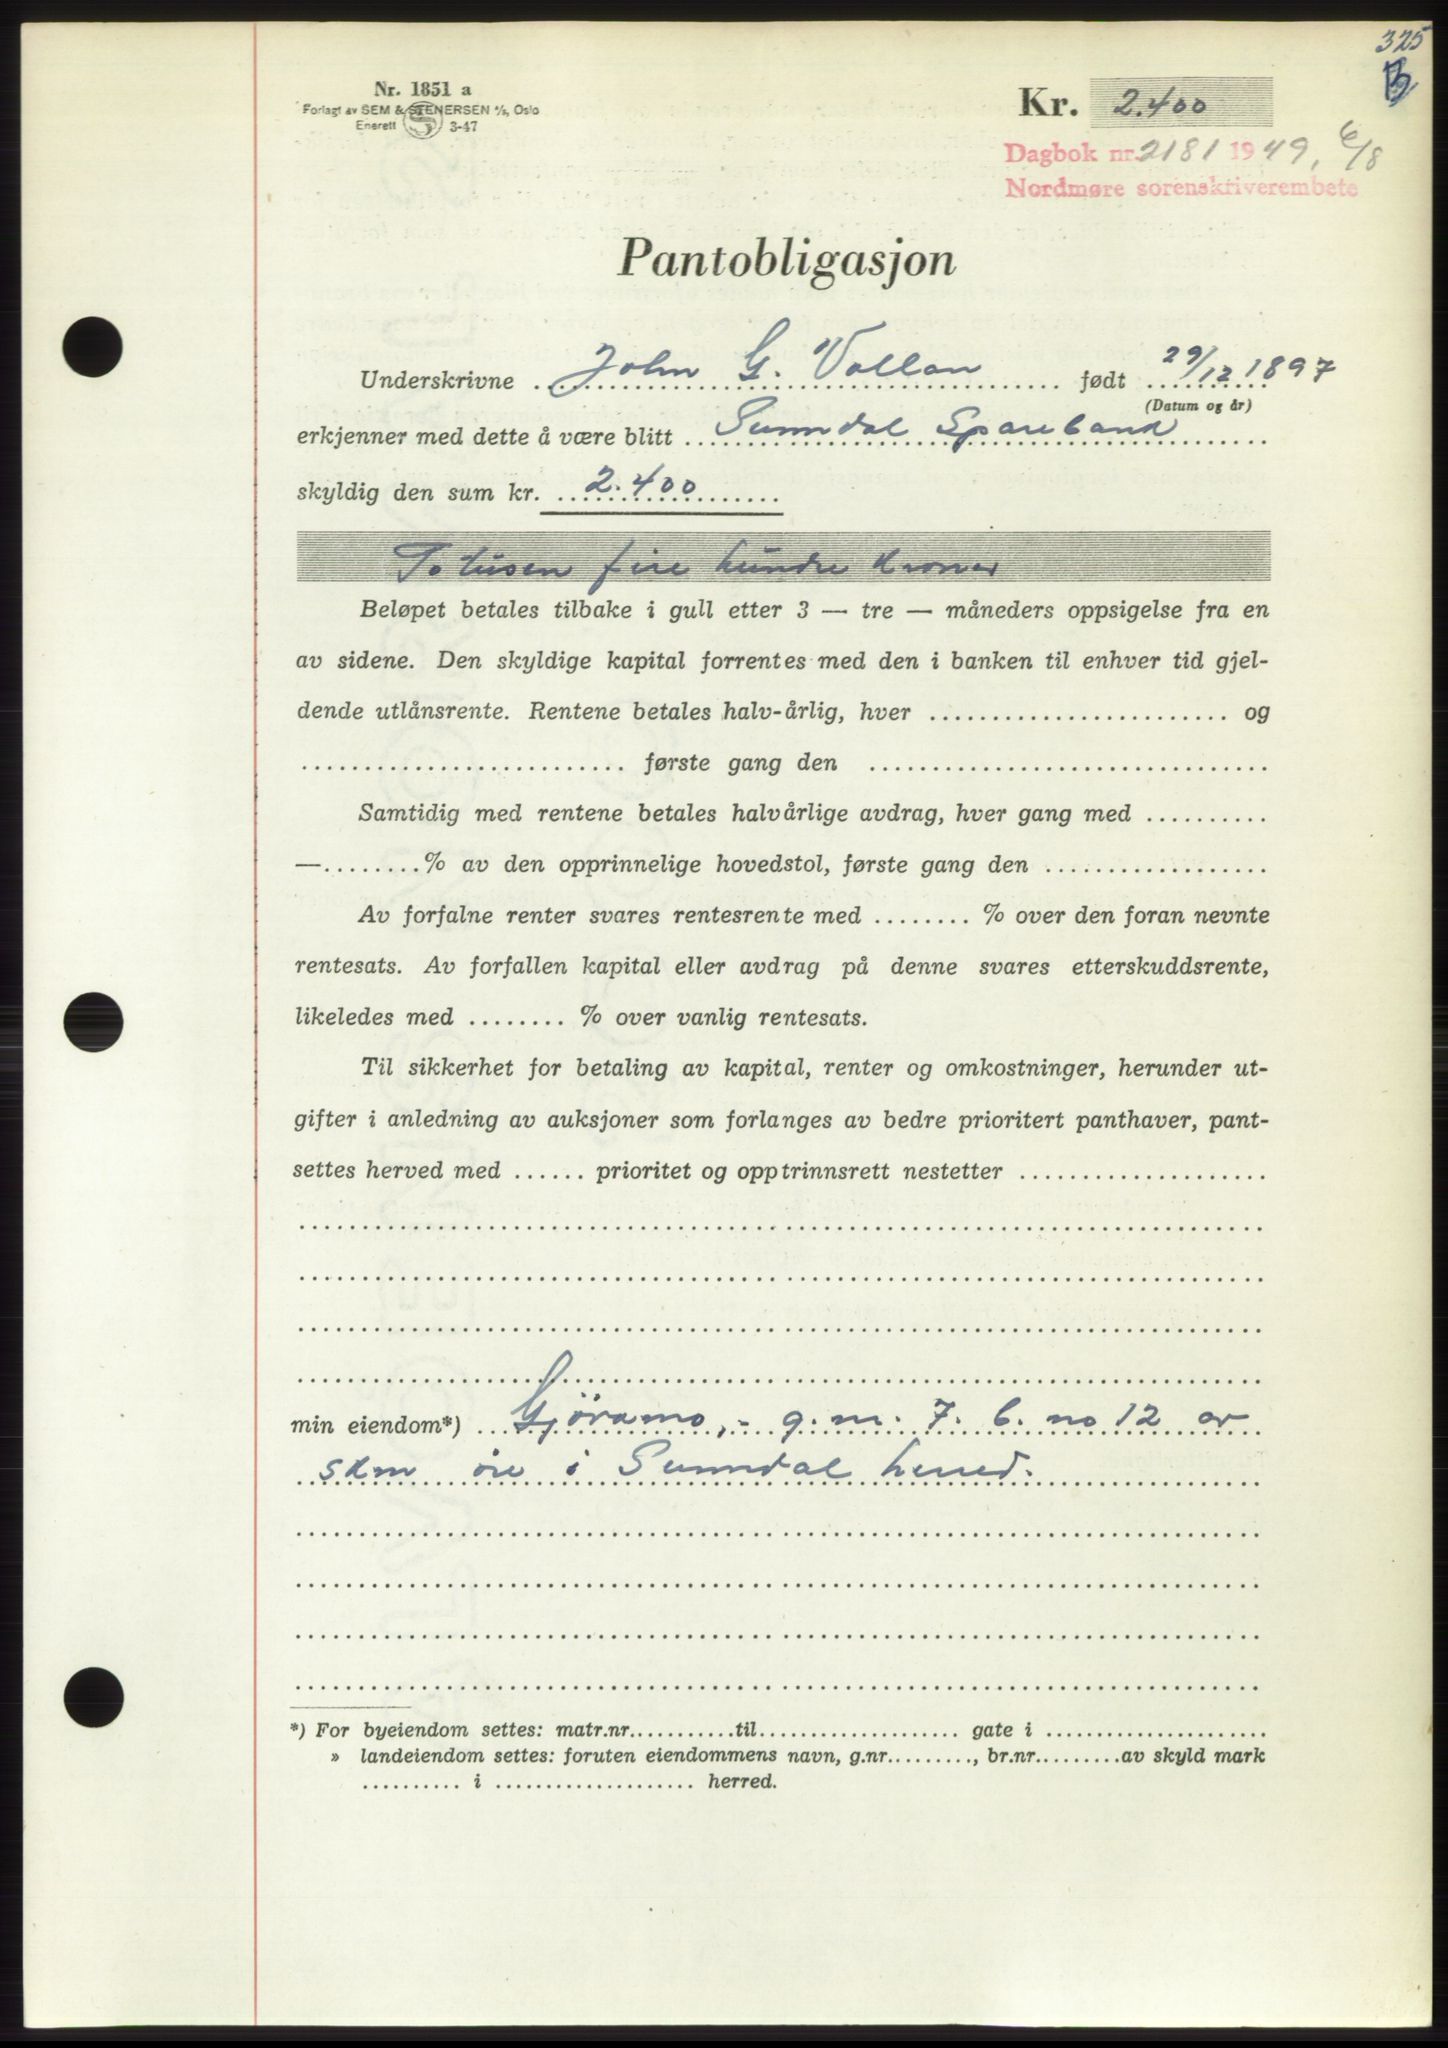 325
B
Nr. 1851 a
Forlagt av SEM & STENERSEN A/S, Oslo
Enerett 3-47
Kr. 2.400
Dagbok nr. 2181 1949, 6/8
Nordmøre sorenskriverembete
Pantobligasjon
Underskrivne John G. Vollan født 29/12 1897
(Datum og år)
erkjenner med dette å være blitt Sunndal Sparebank
skyldig den sum kr. 2.400
To tusen fire hundre kroner
Beløpet betales tilbake i gull etter 3 — tre — måneders oppsigelse fra en
av sidene. Den skyldige kapital forrentes med den i banken til enhver tid gjel-
dende utlånsrente. Rentene betales halv-årlig, hver ........................ og
.......................... første gang den ................................
Samtidig med rentene betales halvårlige avdrag, hver gang med ..........
—........% av den opprinnelige hovedstol, første gang den ..................
Av forfalne renter svares rentesrente med ........ % over den foran nevnte
rentesats. Av forfallen kapital eller avdrag på denne svares etterskuddsrente,
likeledes med ........ % over vanlig rentesats.
Til sikkerhet for betaling av kapital, renter og omkostninger, herunder ut-
gifter i anledning av auksjoner som forlanges av bedre prioritert panthaver, pant-
settes herved med ...... prioritet og opptrinnsrett nestetter ....................
min eiendom*) Gjöramo, - g.nr. 7. b. no 12 av
skm øre i Sunndal herred.
*) For byeiendom settes: matr.nr...........til.................... gate i ......................
» landeiendom settes: foruten eiendommens navn, g.nr........., br.nr.........av skyld mark
.......... i .................... herred.